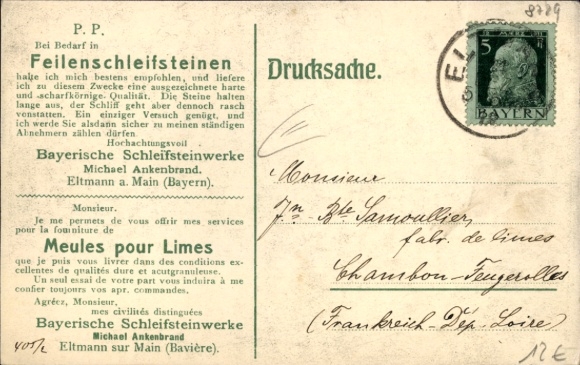 P. P.
Bei Bedarf in
Feilenschleifsteinen
halte ich mich bestens empfohlen, und liefere
ich zu diesem Zwecke eine ausgezeichnete harte
und -scharfkörnige- Qualität. Die Steine halten
lange aus, der Schliff geht aber dennoch rasch
vonstatten. Ein einziger Versuch genügt, und
ich werde Sie alsdann sicher zu meinen ständigen
Abnehmern zählen dürfen.
Hochachtungsvoll
Bayerische Schleifsteinwerke
Michael Ankenbrand.
Eltmann a. Main (Bayern).
Monsieur.
Je me permets de vous offrir mes services
pour la founiture de
Meules pour Limes
que je puis vous livrer dans des conditions ex-
cellentes de qualités dure et acutgranuleuse.
Un seul essai de votre part vous induira à me
confier toujours vos apr. commandes.
Agréez, Monsieur,
mes civilités distinguées
Bayerische Schleifsteinwerke
Michael Ankenbrand
Eltmann sur Main (Bavière).
405/2
Drucksache.
8789
5
BAYERN
EL
Monsieur
Jn. Bte Samoullier,
fabr. de limes
Chambon-Feugerolles
(Frankreich-Dép. Loire)
12€